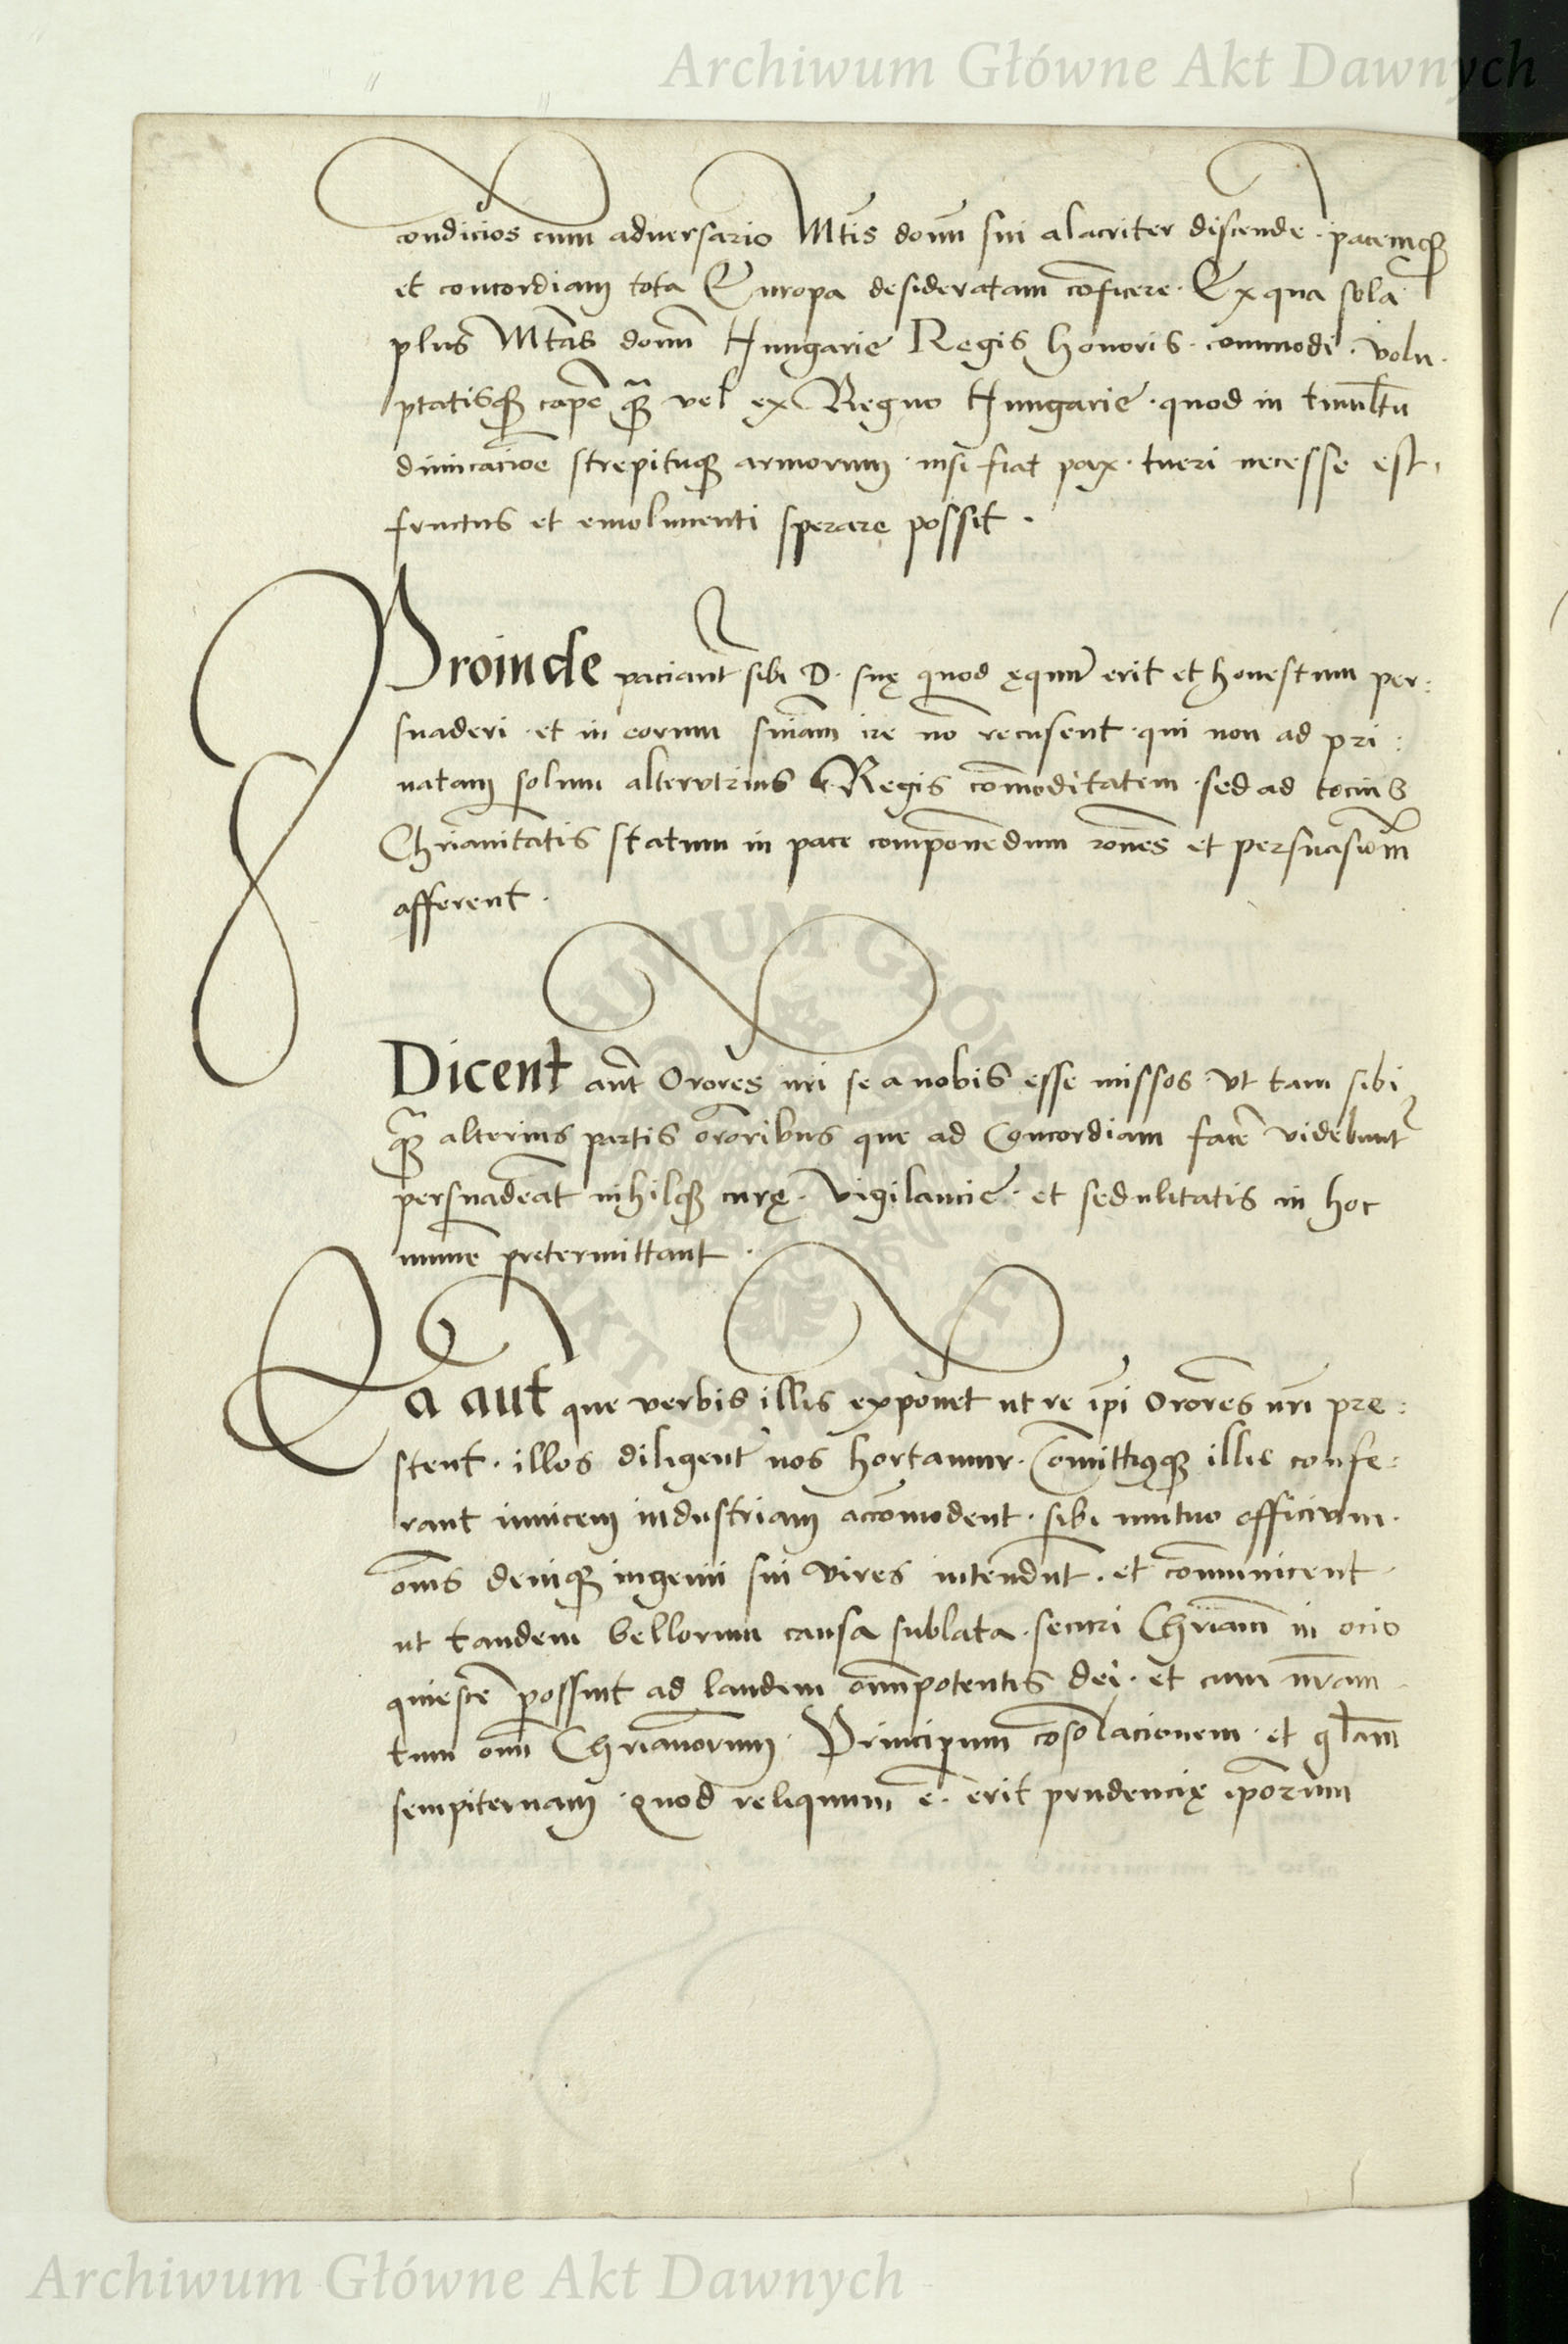 Archiwum Główne Akt Dawnych
condicios cum aduersario Mtis domi sui alacriter discende · pacemqȝ
et concordiam tota Europa desideratam cōficere · Ex qua sola
plus Mtas domi Hungarie Regis honoris · commodi · volu ·
ptatisqȝ capē qȝ̄ vel ex Regno Hungarie · quod in tumultu
dimicacioe strepituqȝ armorum · nisi fiat pax · tueri necesse est ,
fructus et emolumenti sperare possit ·
Proinde paciant sibi D · suę quod ęquū erit et honestum per :
suaderi · et in eorum sniam ire nō recusent · qui non ad pri :
uatam solum alterutrius Regis cōmoditatem · sed ad tocius
Chrianitatis statum in pace componendum rones et persuasiom
afferent ·
Dicent aūt Orores nri se a nobis esse missos · vt tam sibi
qȝ̄ alterius partis ororibus que ad Concordiam facē videbunt
persuadeāt nihilqȝ curę · vigilancie · et sedulitatis in hoc
munē pretermittant ·
Ea aut que verbis illis exponet ut re ipi Orores nri pre :
stent · illos diligent nos hortamur · Comittimꝰqȝ illis confe :
rant inuicem industriam accōmodent · sibi mutuo officium ·
om̄s deniqȝ ingenii sui vires intendnt · et cōmunicent
ut tandem bellorum causa sublata · securi Chriani in ocio
quiescē possint ad laudem omnipotentis dei · et cum nram
tum om̄i Chrianorum · Principum cōsolacionem · et gl̄am
sempiternam · quod reliquum ē · erit prudencię ipōrum
ARCHIWUM GŁÓWNE AKT DAWNYCH
Archiwum Główne Akt Dawnych